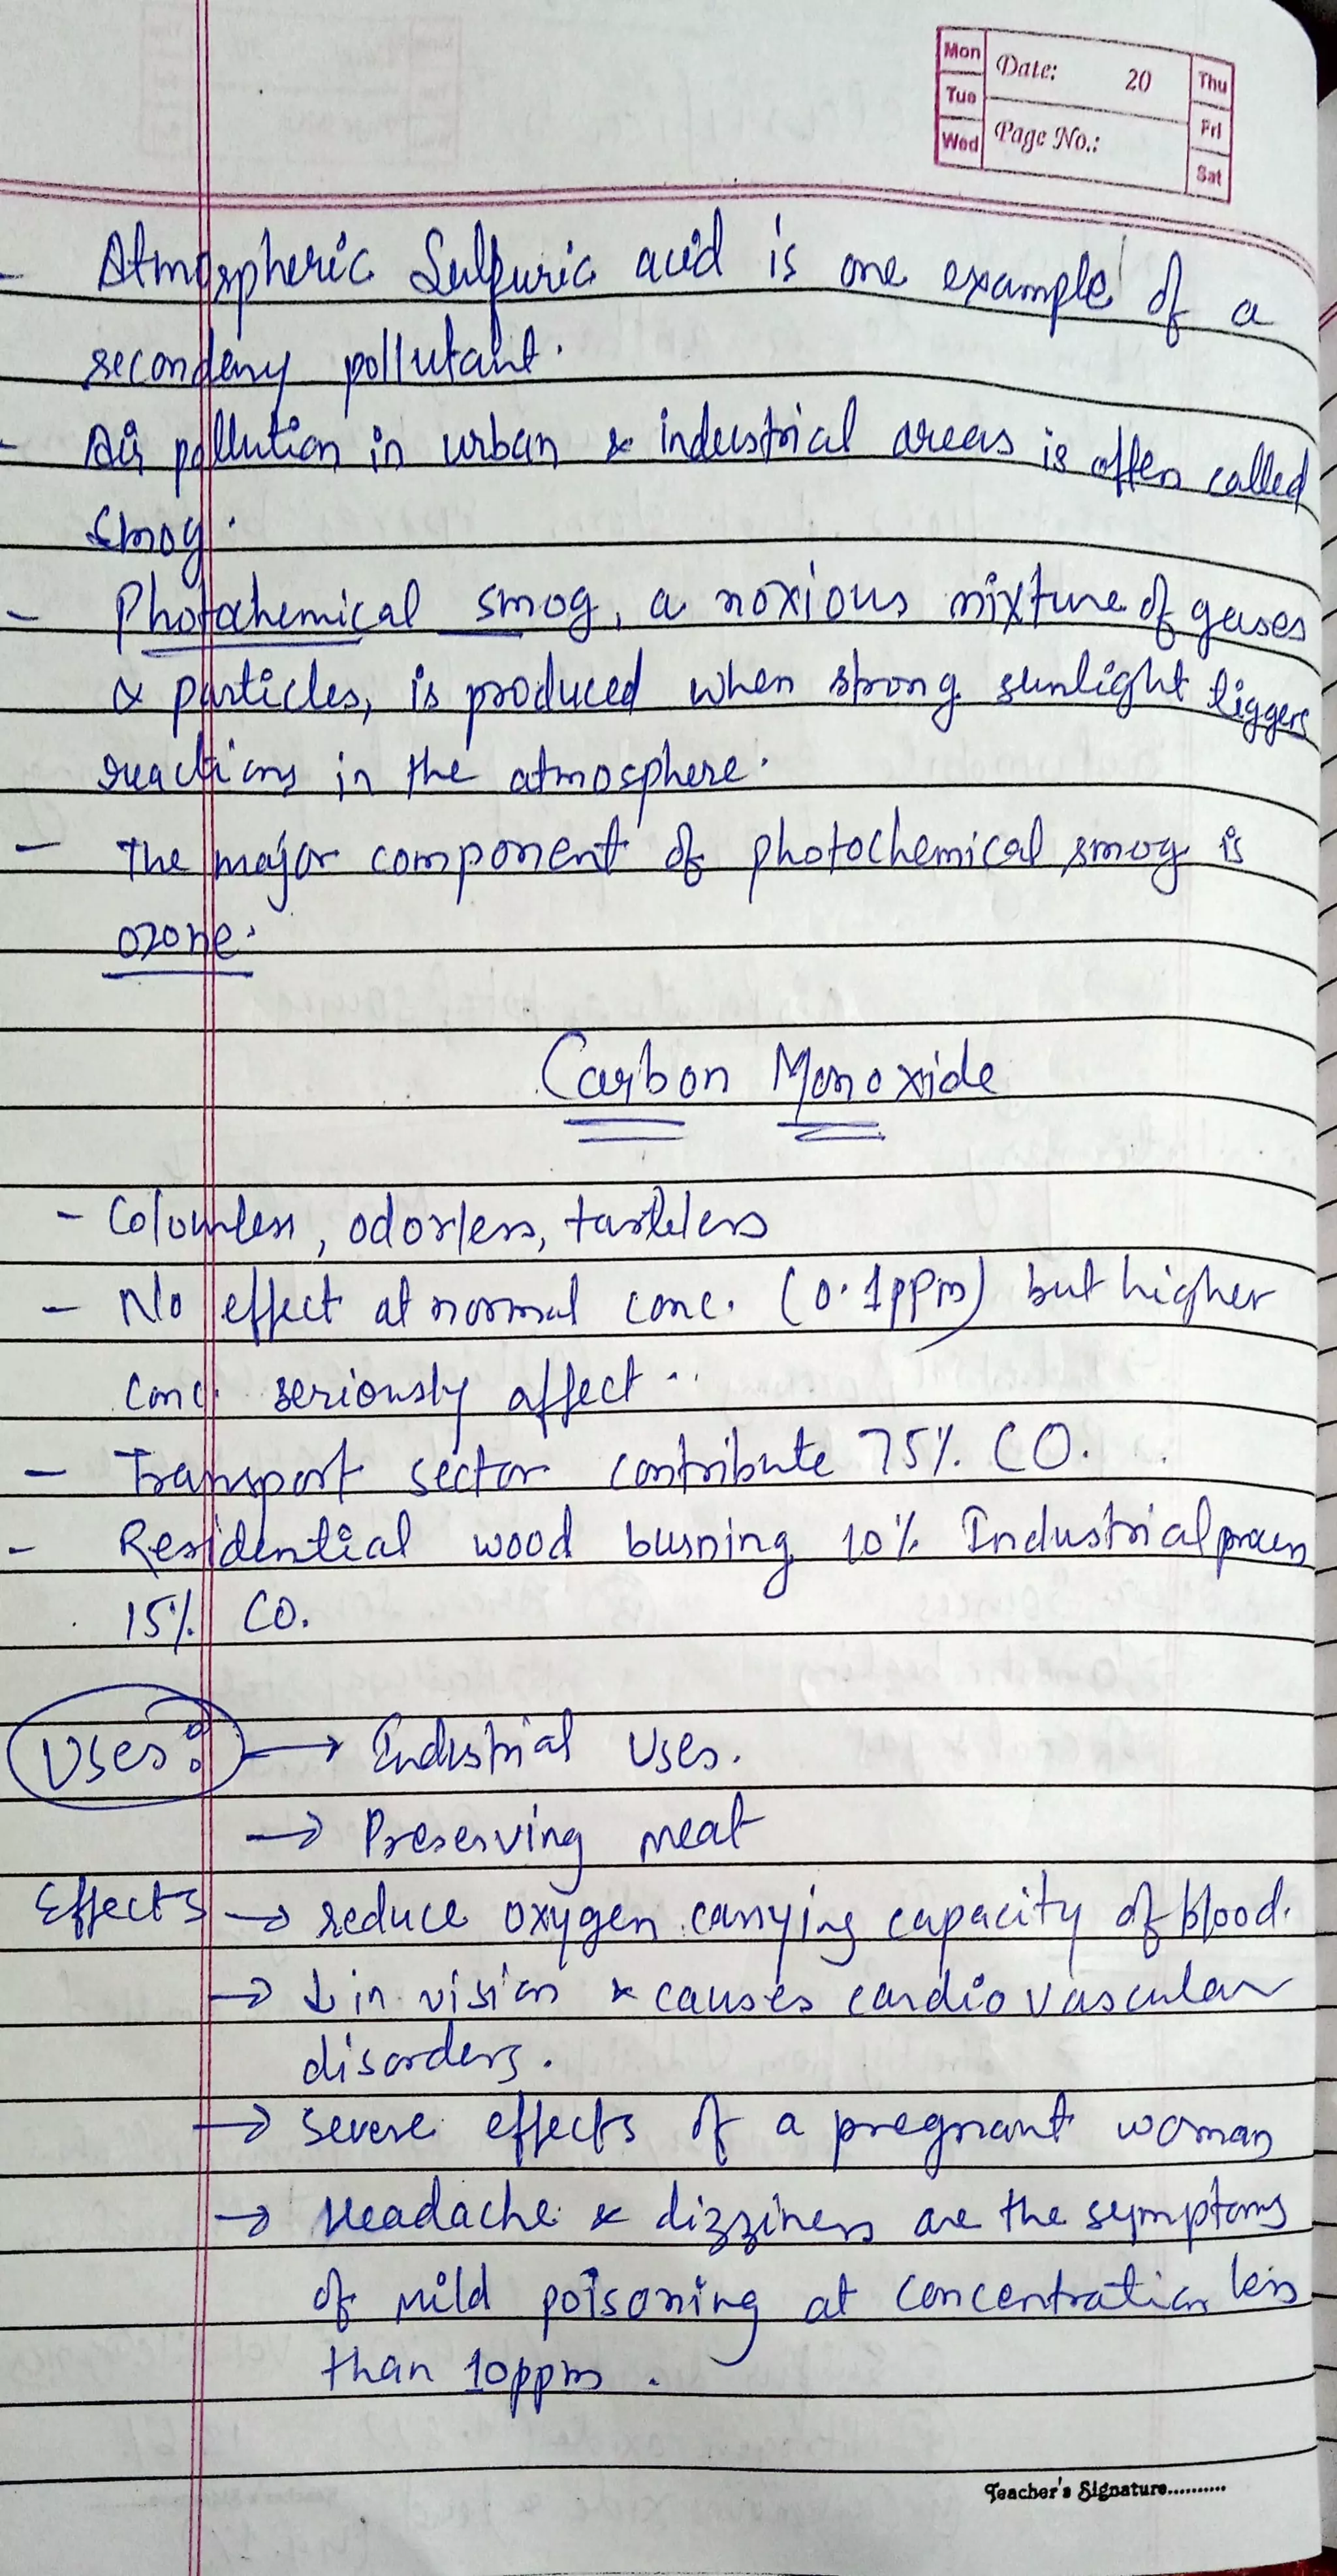 Mon Date: 20 Thu
Tue Fri
Wed Page No.: Sat
- Atmospheric Sulfuric acid is one example of a
secondary pollutant.
- Air pollution in urban & industrial areas is often called
smog.
- Photochemical smog, a noxious mixture of gases
& particles, is produced when strong sunlight tiggers
reactions in the atmosphere.
- The major component of photochemical smog is
ozone.
Carbon Monoxide
- Colourless, odorless, tasteless
- No effect at normal conc. (0.1ppm) but higher
conc. seriously affect..
- Transport sector contribute 75% CO.
- Residential wood burning 10% Industrial process
15% CO.
Uses: → Industrial Uses.
→ Preserving meat
Effects → reduce oxygen carrying capacity of blood.
→ ↓ in vision & causes cardiovascular
disorders.
→ severe effects of a pregnant woman
→ Headache & dizziness are the symptoms
of mild poisoning at concentration less
than 10ppm.
Teacher's Signature..........